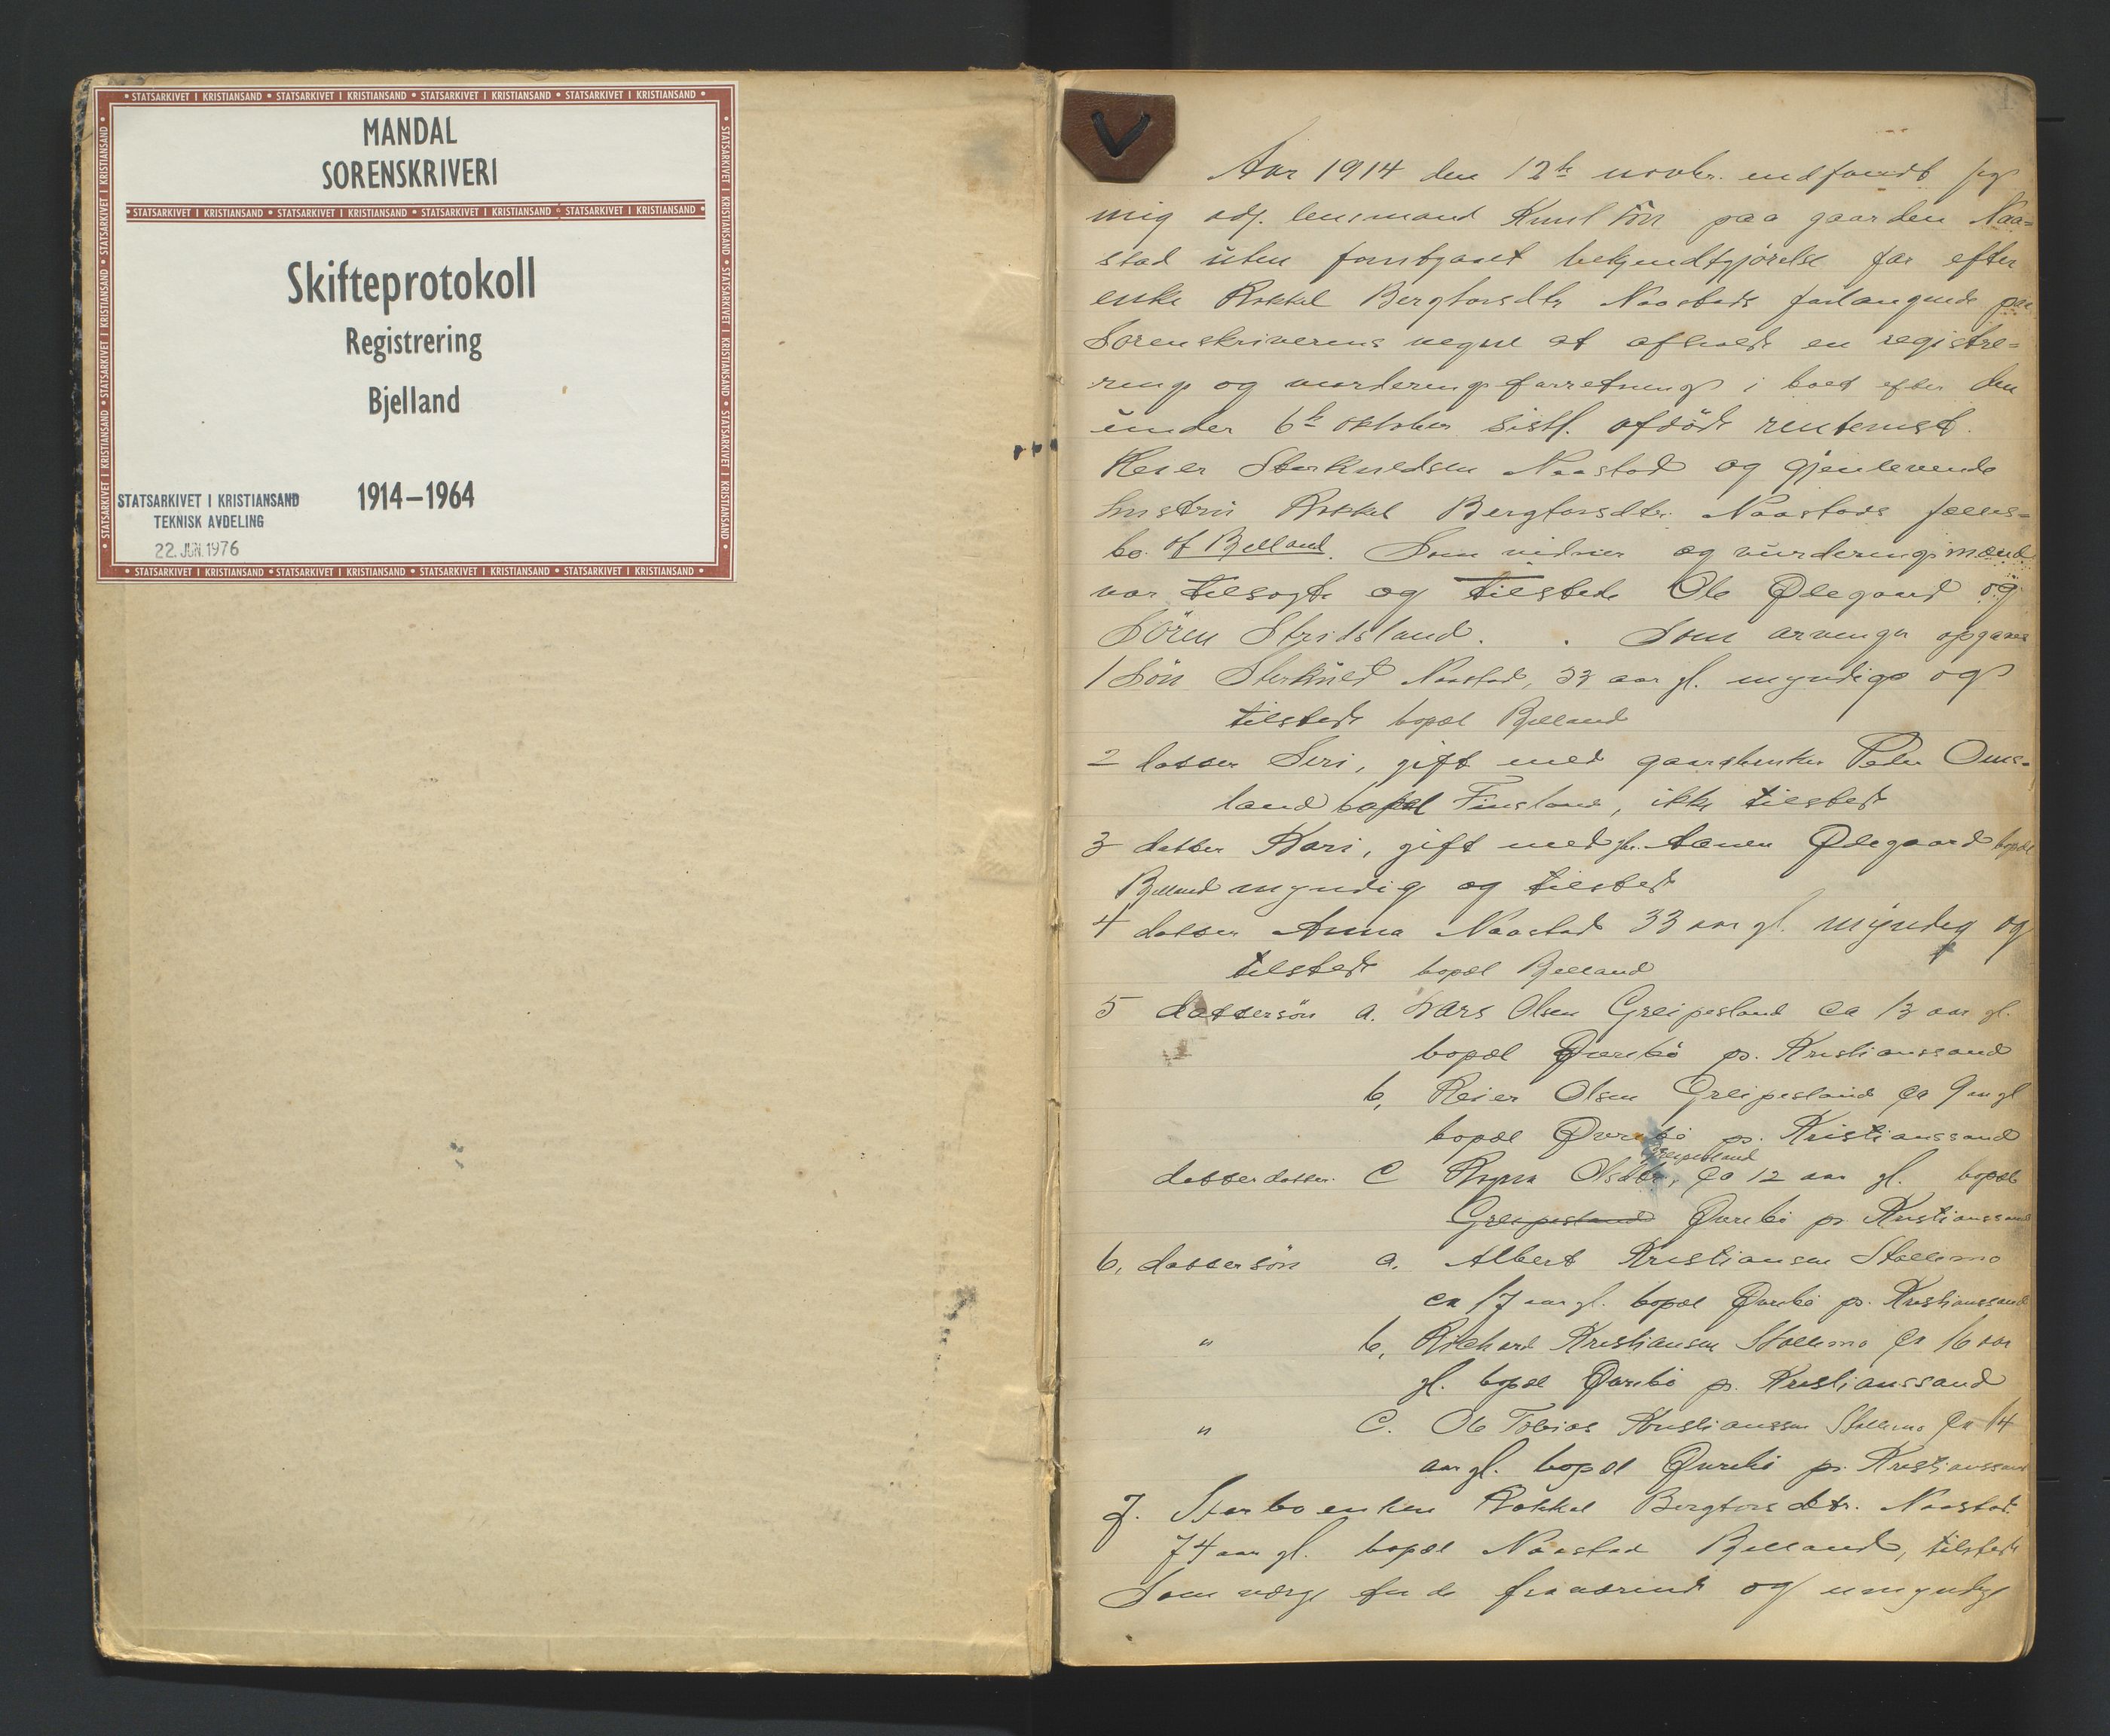 MANDAL
SORENSKRIVERI
Skifteprotokoll
Registrering
Bjelland
1914–1964
STATSARKIVET I KRISTIANSAND
TEKNISK AVDELING
22. JUN. 1976
Aar 1914 den 12te novbr. indfandt jeg
mig adj. lensmand Knut paa gaarden Naa-
stad uten forutgaaet bekjendtgjörelse for efter
enke Rakkel Bergtorsdtr Naastads forlangende paa
Sorenskriverens vegne at afholde en registre-
rings og vurderingsforretning i boet efter den
under 6te oktober sistl. afdöde rentenist
Reier Sterkuldsen Naastad og gjenlevende
hustru Rakkel Bergtorsdtr. Naastads fælles-
bo. af Bjelland. Som vidner og vurderingsmænd
var tilsagte og tilstede Ole Ødegaard og
Sören Stridsland. . Som arvinger opgaves
1 Sön Sterkuld Naastad, 33 aar gl. myndig og
tilstede bopæl Bjelland
2 datter Siri, gift med gaardbruker Peder Oms-
land bopæl Finsland, ikke tilstede
3 datter Kari, gift med gbr. Aanen Ødegaard bopæl
Bjelland myndig og tilstede
4 datter Anna Naastad 33 aar gl. myndig og
tilstede bopæl Bjelland
5 dattersön a. Lars Olsen Greipesland ca 13 aar gl.
bopæl Øvrebö pr. Kristianssand
b, Reier Olsen Greipesland ca 9 aar gl
bopæl Øvrebö pr. Kristianssand
Greipesland
datterdatter. C Ragna Olsdtr, ca 12 aar gl. bopæl
Greipesland Øvrebö pr Kristianssand
6, dattersön a. Albert Kristiansen Stallemo
ca 17 aar gl. bopæl Øvrebö pr. Kristianssand
" b, Rickard Kristiansen Stallemo ca 16 aar
gl. bopæl Øvrebö pr. Kristianssand
" C. Ole Tobias Kristianssen Stallemo ca 14
aar gl. bopæl Øvrebö pr. Kristianssand
7. Starboenken Rakkel Bergtorsdtr. Naastad
74 aar gl. bopæl Naastad Bjelland, tilstede
Som værge for de fraværende og umyndige